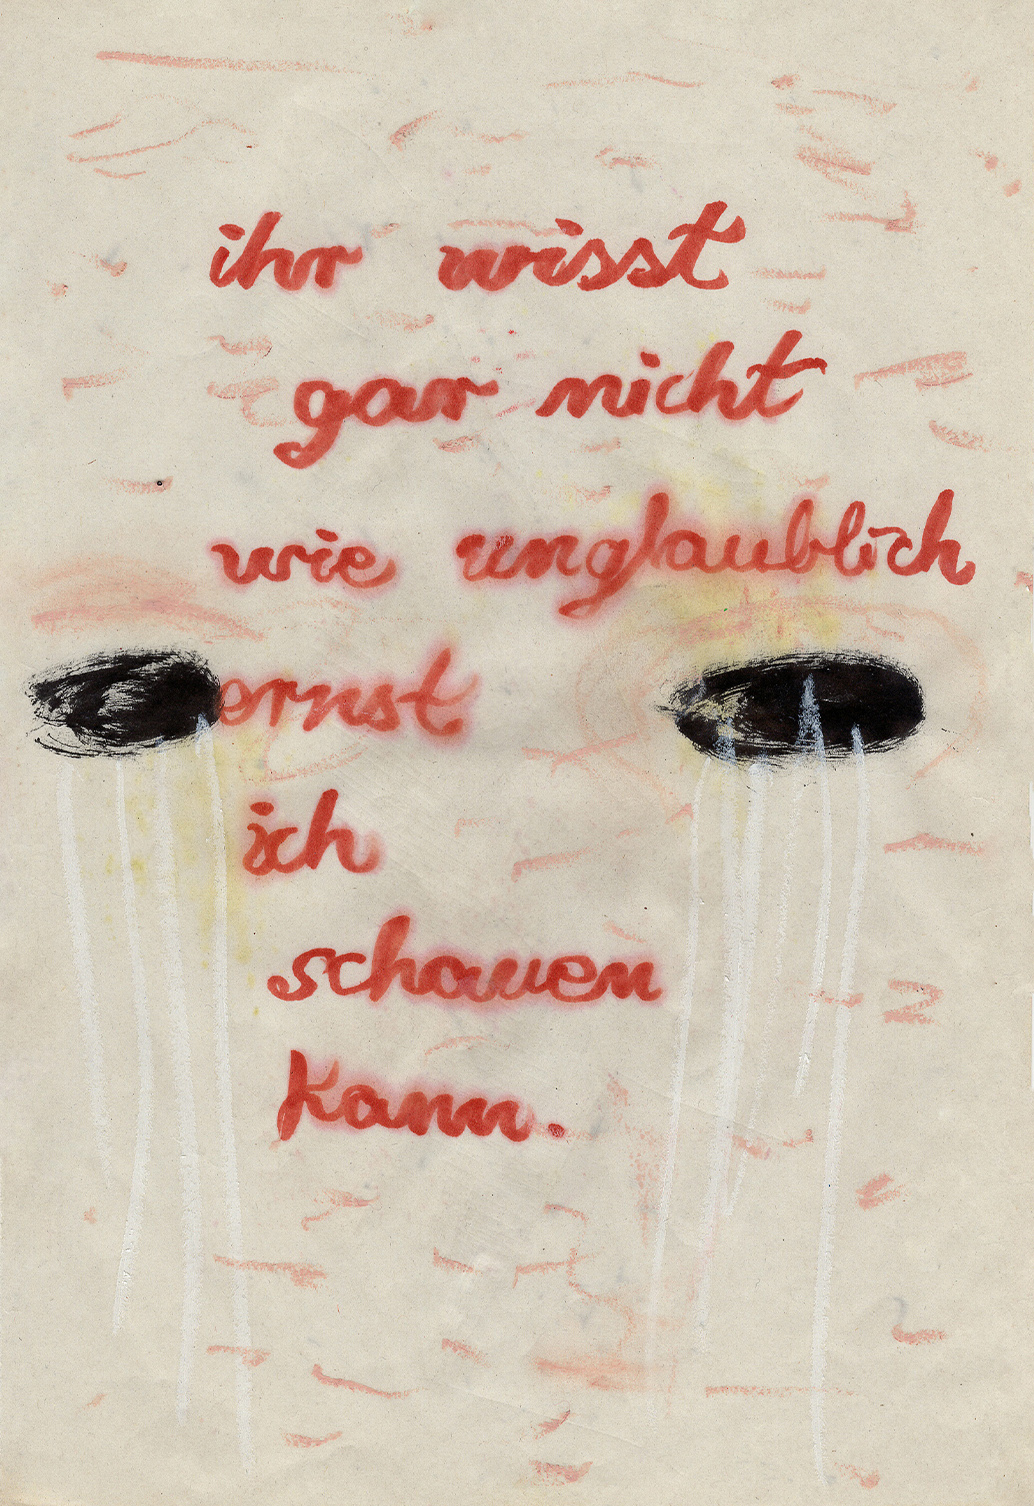 ihr wisst
gar nicht
wie unglaublich
ernst
ich
schauen
kann.